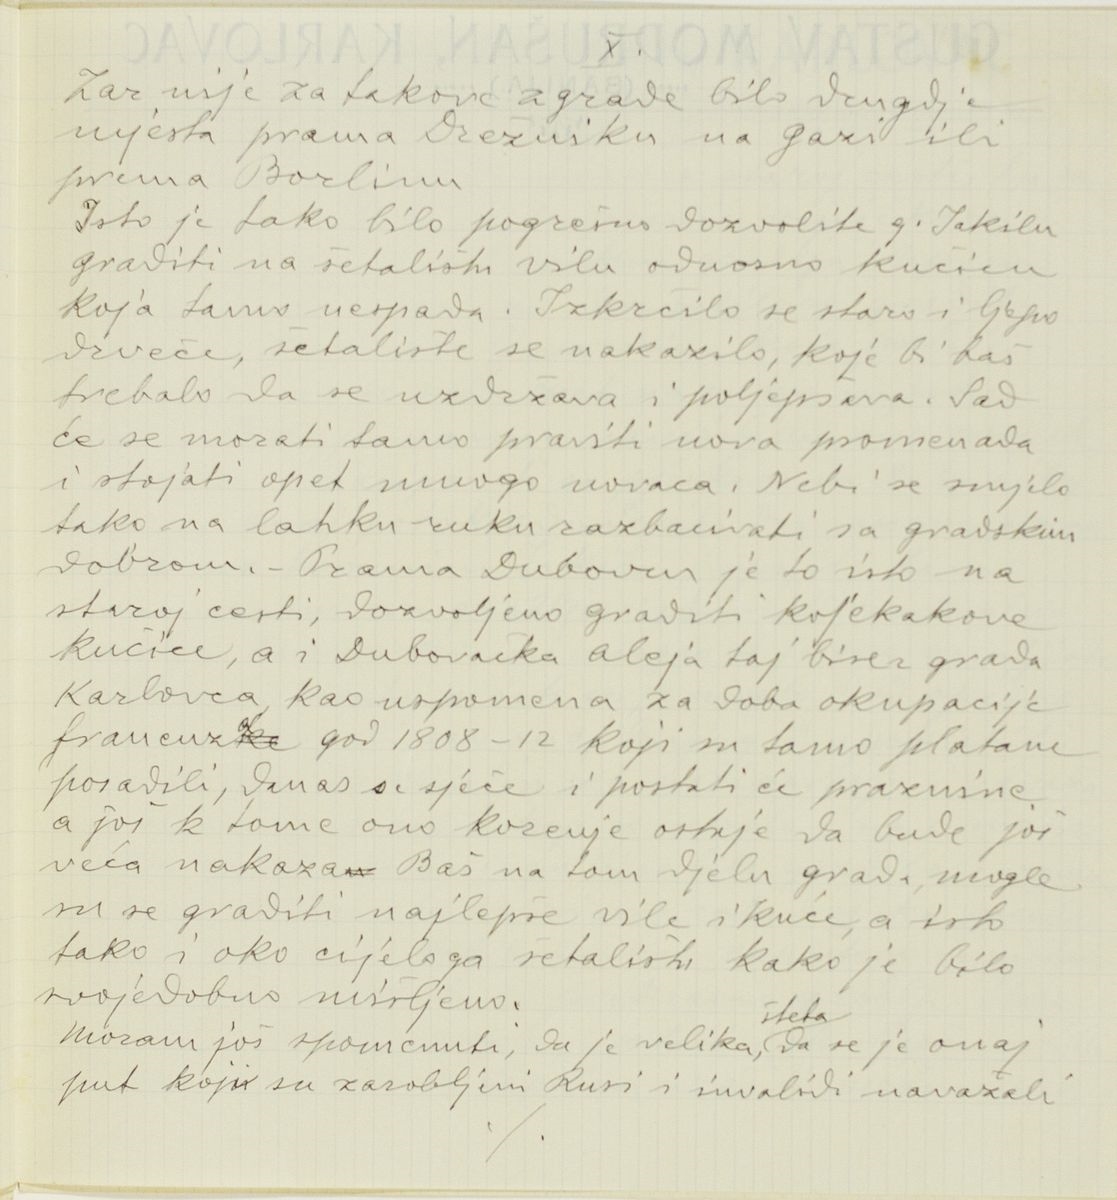 X.
Zar nije za takove zgrade bilo drugdje
mjesta prama Drežniku na Gazi ili
prema Borlinu
Isto je tako bilo pogrešno dozvolite g. Jakilu
graditi na šetalištu vilu odnosno kućicu
koja tamo nespada. Izkrčilo se staro i ljepo
drveće, šetalište se nakazilo, koje bi baš
trebalo da se uzdržava i poljepšava. Sad
će se morati tamo praviti nova promenada
i stojati opet mnogo novaca. Nebi se smjelo
tako na lahku ruku razbacivati sa gradskim
dobrom. - Prama Dubovcu je to isto na
staroj cesti, dozvoljeno graditi kojekakove
kućice, a i Dubovačka aleja taj biser grada
Karlovca, kao uspomena za doba okupacije
francuza god 1808-12 koji su tamo platane
posadili, danas se sječe i postati će praznine
a još k tome ono korenje ostaje da bude još
veća nakaza Baš na tom djelu grada, mogle
su se graditi najlepše vile i kuće, a isto
tako i oko cijeloga šetališta kako je bilo
svojedobno mišljeno.
Moram još spomenuti, da je velika, šteta da se je onaj
put koji su zarobljeni Rusi i invalidi navažali
./.
GUSTAV MODRUŠAN, KARLOVAC